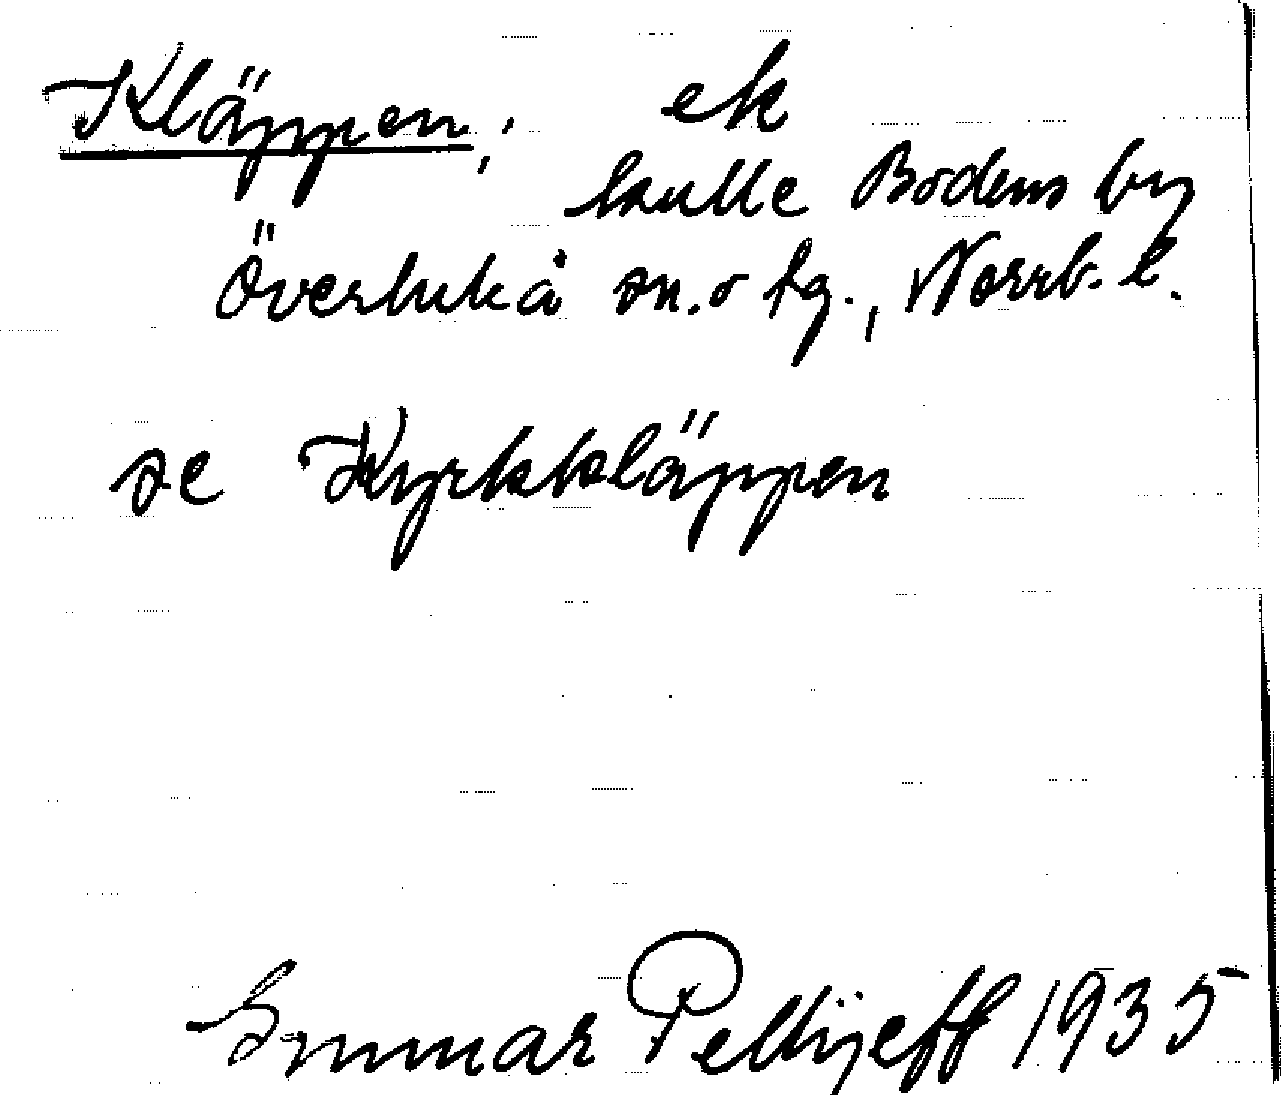 Kläppen, ek
kulle Bodens by
Överlukå sn. o tg., Norrb. l.
se Kyrkkläppen
Gunnar Pellijeff 1935